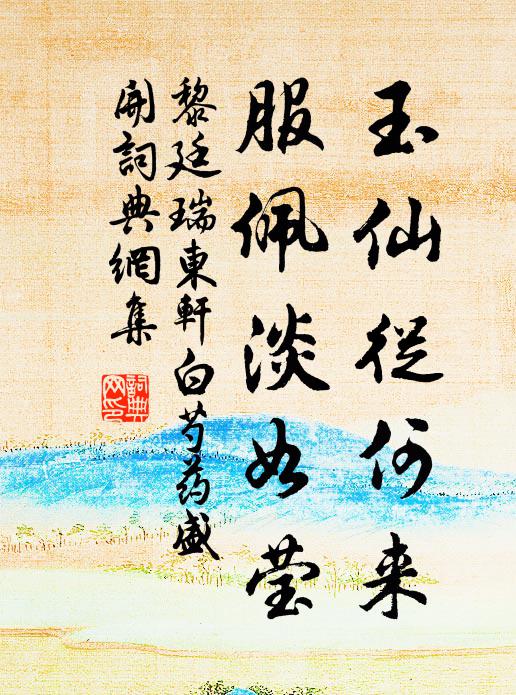 玉仙從何来
服佩淡如莹
黎廷瑞東軒白芍药盛
開詞典網集
詞典
网印